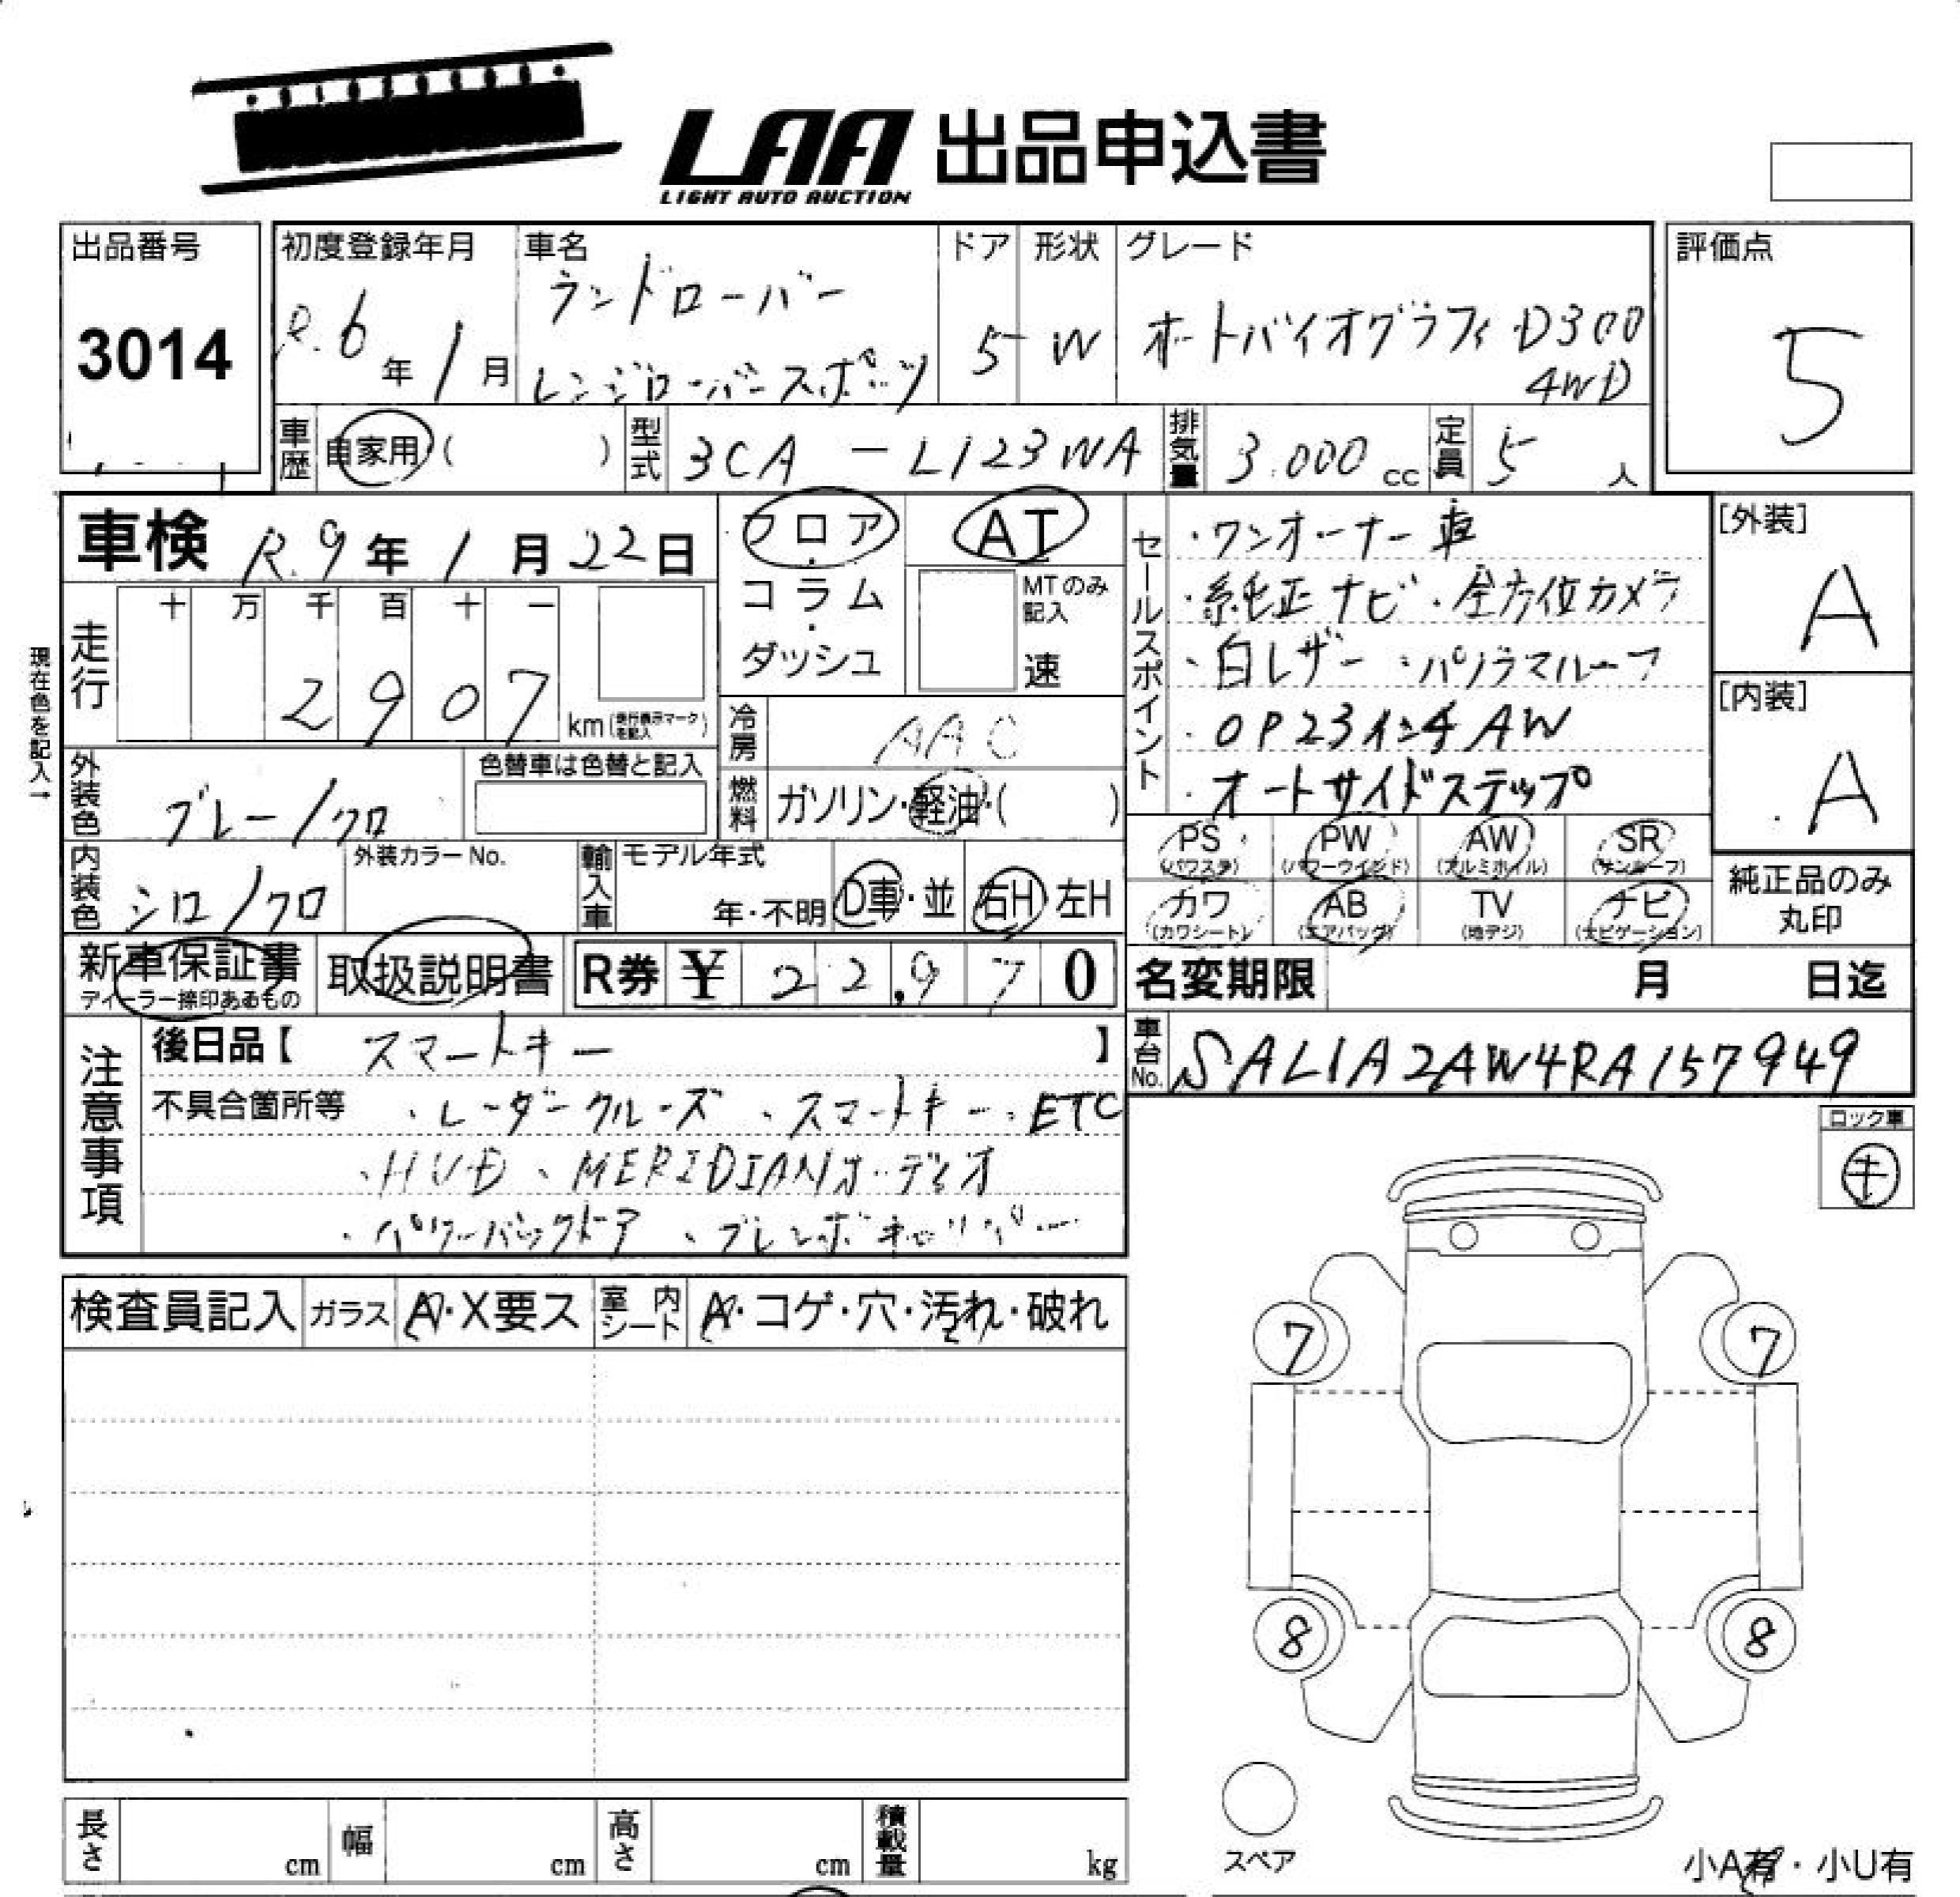 LAA 出品申込書
LIGHT AUTO AUCTION
出品番号
3014
初度登録年月
R.6年1月
車名
ランドローバー
レンジローバースポーツ
ドア
5
形状
W
グレード
オートバイオグラフィ D300
4WD
評価点
5
車歴 自家用 ( )
型式 3CA - L123WA
排気量 3.000 cc
定員 5 人
車検 R.9年1月22日
フロア・コラム・ダッシュ
AT
MTのみ記入
速
走行
十 万 千 百 十 一
2 9 0 7 km (走行表示マークを記入)
現在色を記入→
冷房 AAC
燃料 ガソリン・軽油・( )
外装色 グレー/クロ
色替車は色替と記入
内装色 シロ/クロ
外装カラーNo.
輸入車
モデル年式
年・不明
D車・並
右H 左H
セールスポイント
・ワンオーナー車
・純正ナビ・全方位カメラ
・白レザー ・パノラマルーフ
・OP23インチAW
・オートサイドステップ
[外装]
A
[内装]
A
PS (パワステ)
PW (パワーウインド)
AW (アルミホイル)
SR (サンルーフ)
カワ (カワシート)
AB (エアバッグ)
TV (地デジ)
ナビ (ナビゲーション)
純正品のみ
丸印
新車保証書
ディーラー捺印あるもの
取扱説明書
R券 ¥ 22,970
名変期限 月 日迄
車台No. SAL1A2AW4RA157949
注意事項
後日品【 スマートキー 】
不具合箇所等 ・レーダークルーズ ・スマートキー・ETC
・HUD ・MERIDIANオーディオ
・パワーバックドア ・ブレンボキャリパー
ロック車
キ
検査員記入 ガラス A・X要ス 室内シート A・コゲ・穴・汚れ・破れ
7 7
8 8
スペア
長さ cm 幅 cm 高さ cm 積載量 kg
小A有・小U有